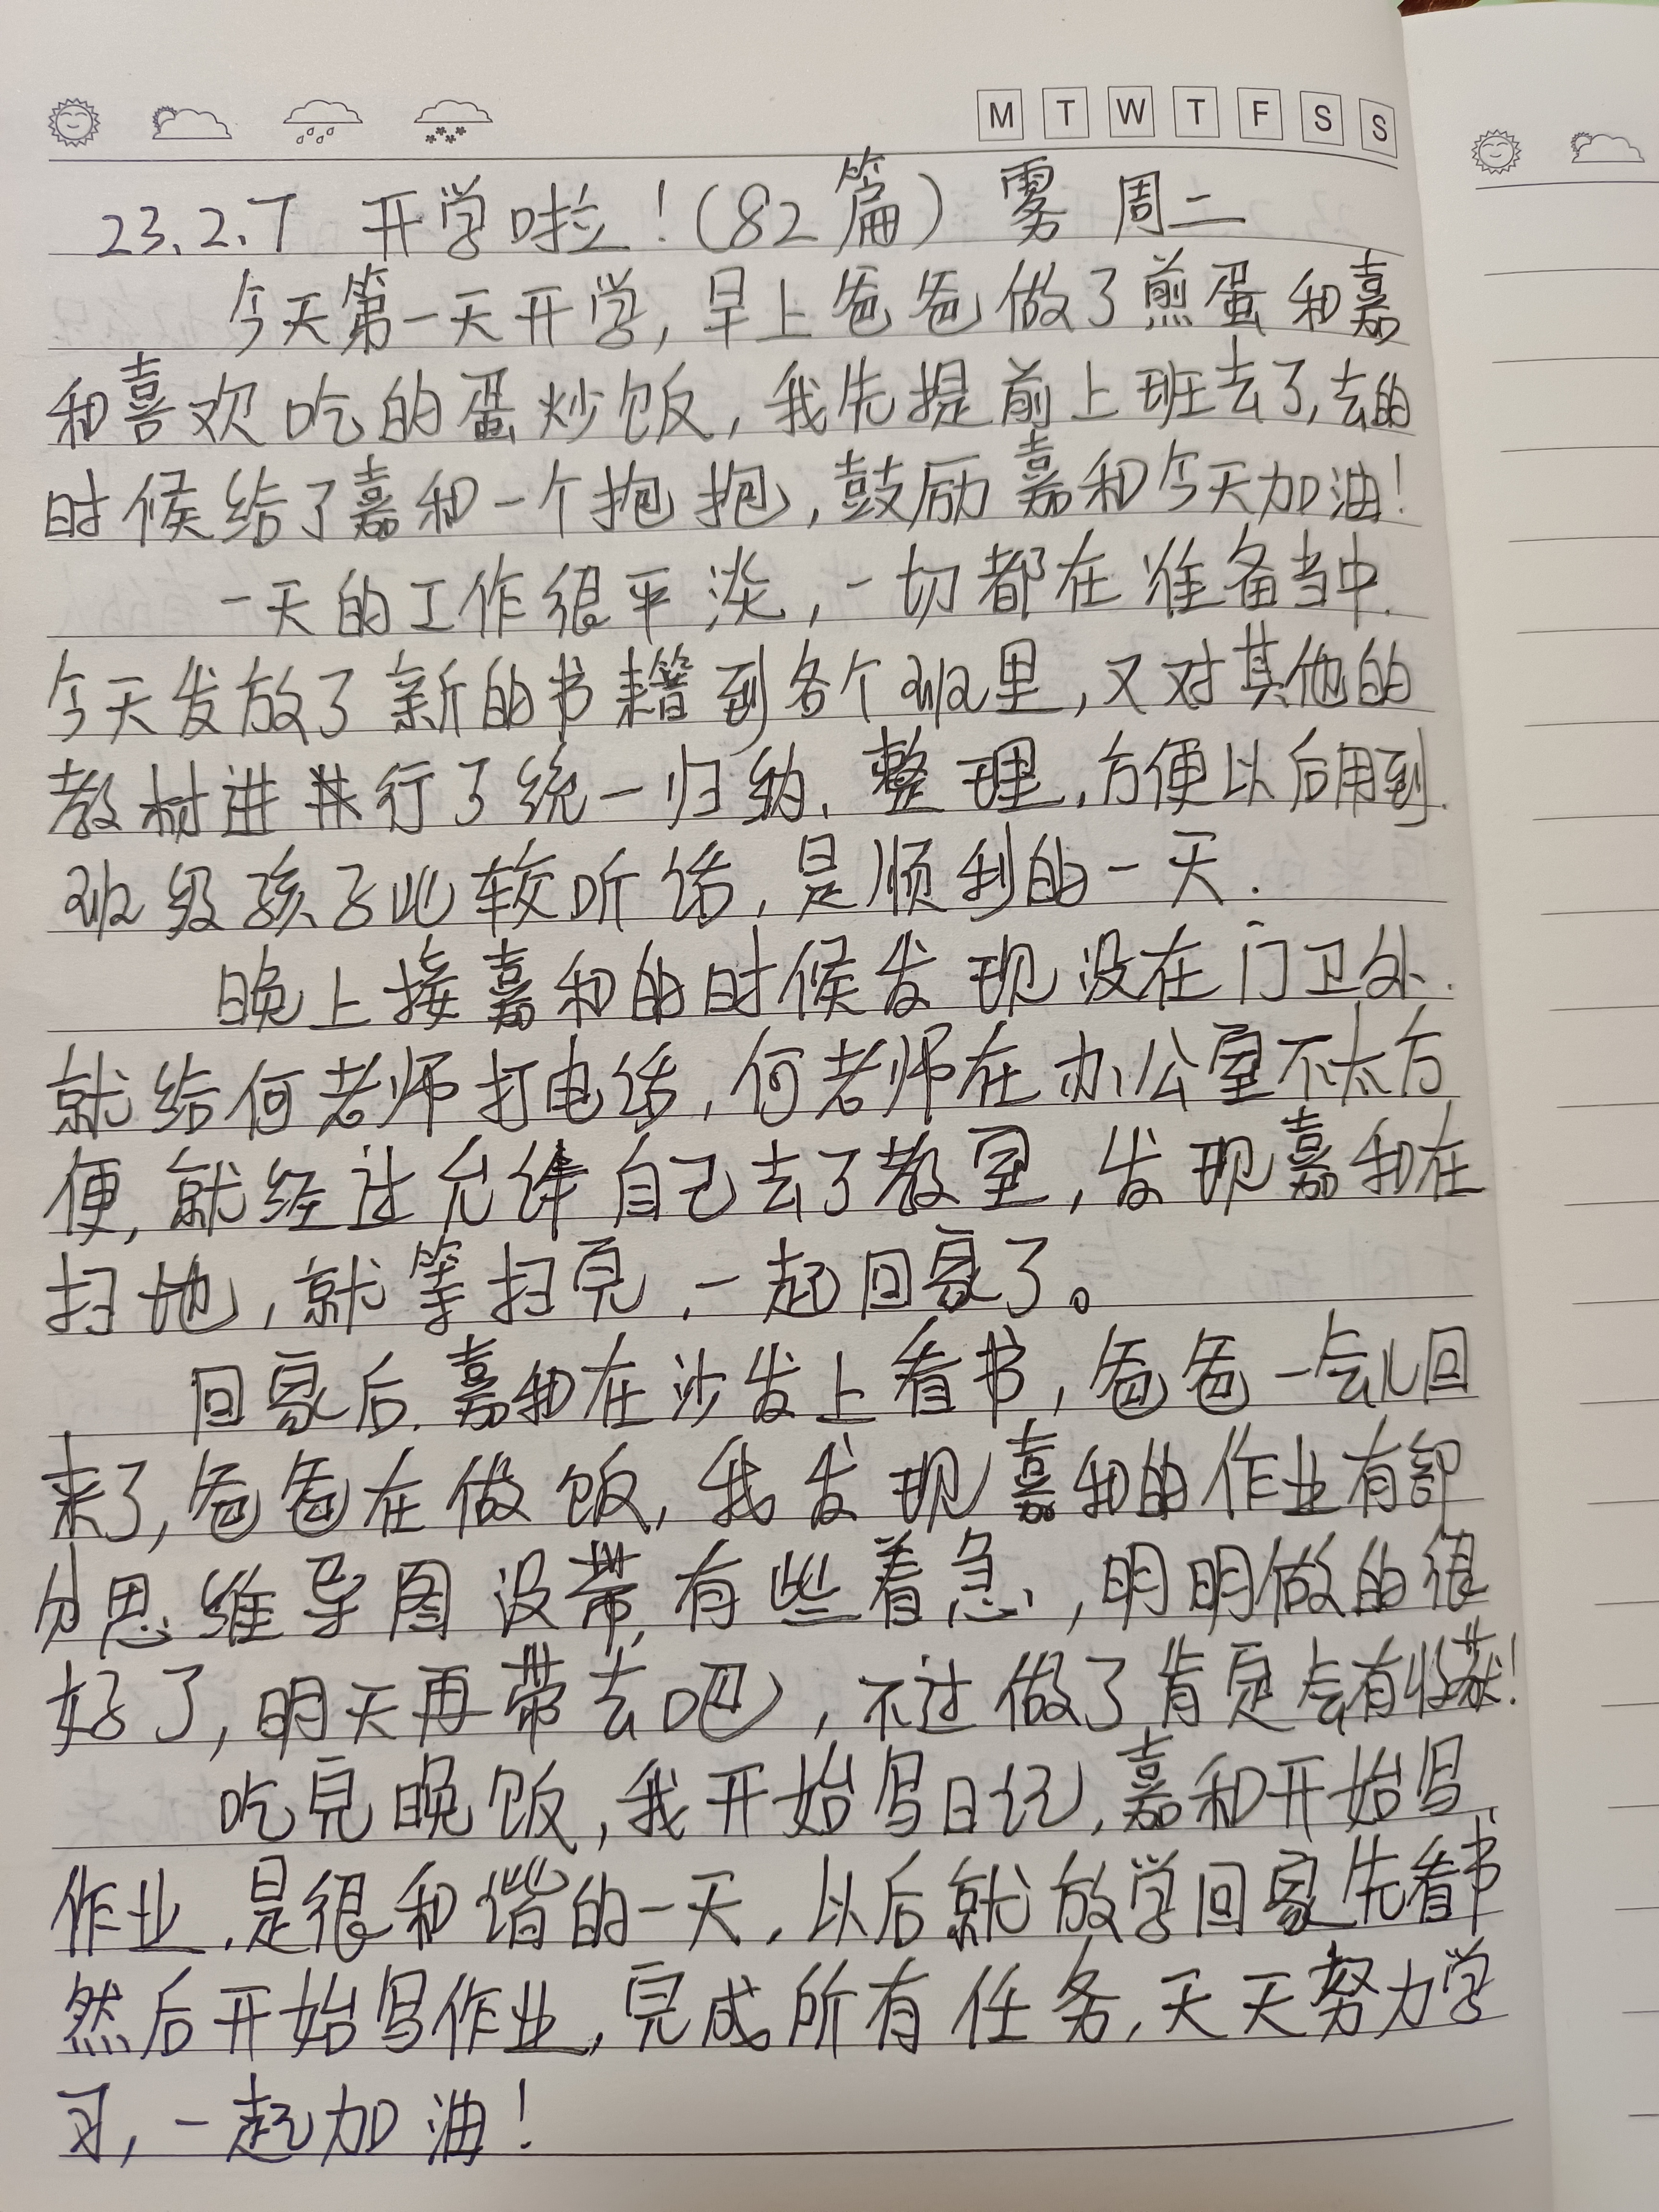 M T W T F S S
23.2.7 开学啦！(82篇) 雾 周二
今天第一天开学，早上爸爸做了煎蛋和嘉
和喜欢吃的蛋炒饭，我先提前上班去了，去的
时候给了嘉和一个抱抱，鼓励嘉和今天加油！
一天的工作很平淡，一切都在准备当中.
今天发放了新的书籍到各个班里，又对其他的
教材进行了统一归纳、整理，方便以后用到.
班级孩子比较听话，是顺利的一天.
晚上接嘉和的时候发现没在门卫处.
就给何老师打电话，何老师在办公室不太方
便，就经过允许自己去了教室，发现嘉和在
扫地，就等扫完，一起回家了。
回家后，嘉和在沙发上看书，爸爸一会儿回
来了，爸爸在做饭，我发现嘉和的作业有部
分思维导图没带，有些着急，明明做的很
好了，明天再带去吧，不过做了肯定会有收获！
吃完晚饭，我开始写日记，嘉和开始写
作业，是很和谐的一天，以后就放学回家先看书、
然后开始写作业，完成所有任务，天天努力学
习，一起加油！